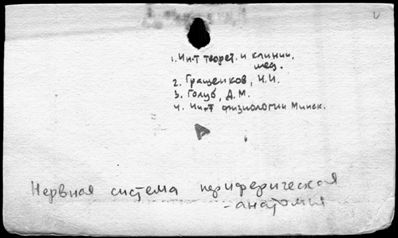 1. Ин-т теорет. и клинич.
мед.
2. Гращенков, Н.И.
3. Голуб, Д.М.
4. Ин-т физиологии Минск.
Нервная система периферическая
- анатомия